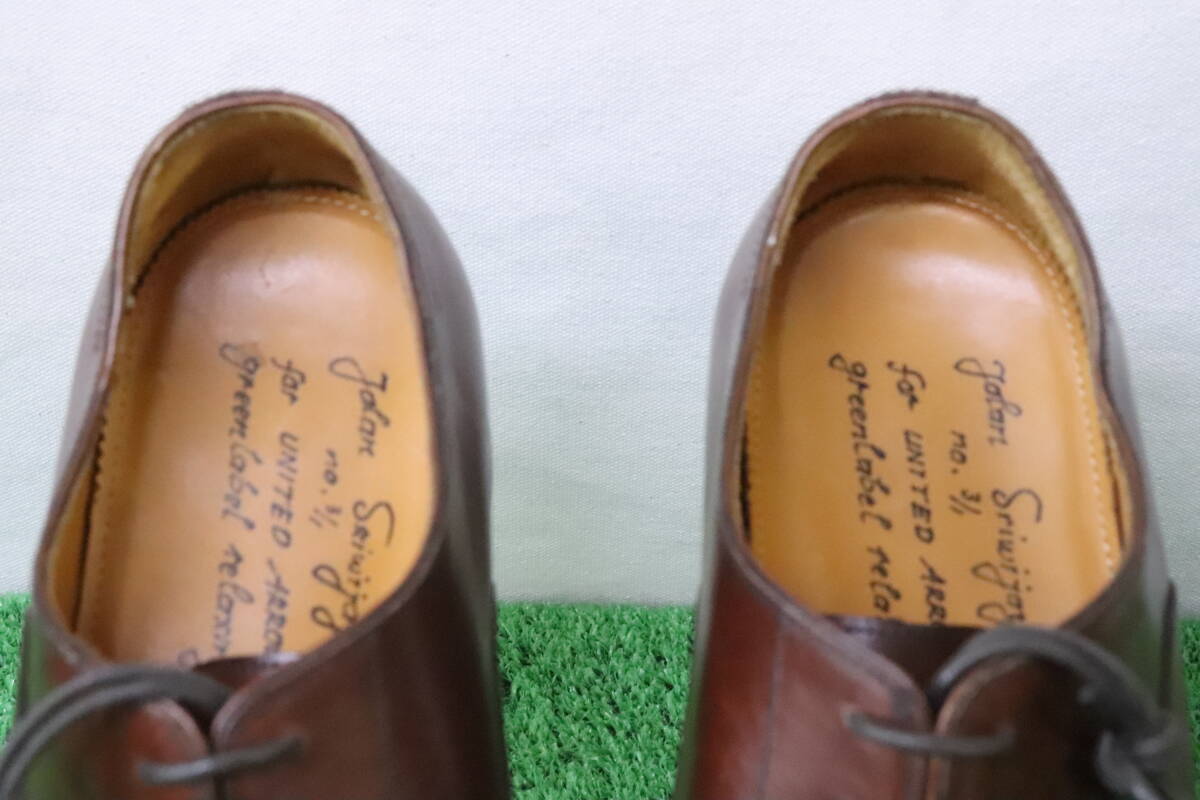 Jalan Sriwijay
no. 3/1
for UNITED ARRO
green label relaxi
Jalan Sriwijay
no. 3/1
for UNITED ARR
green label rela